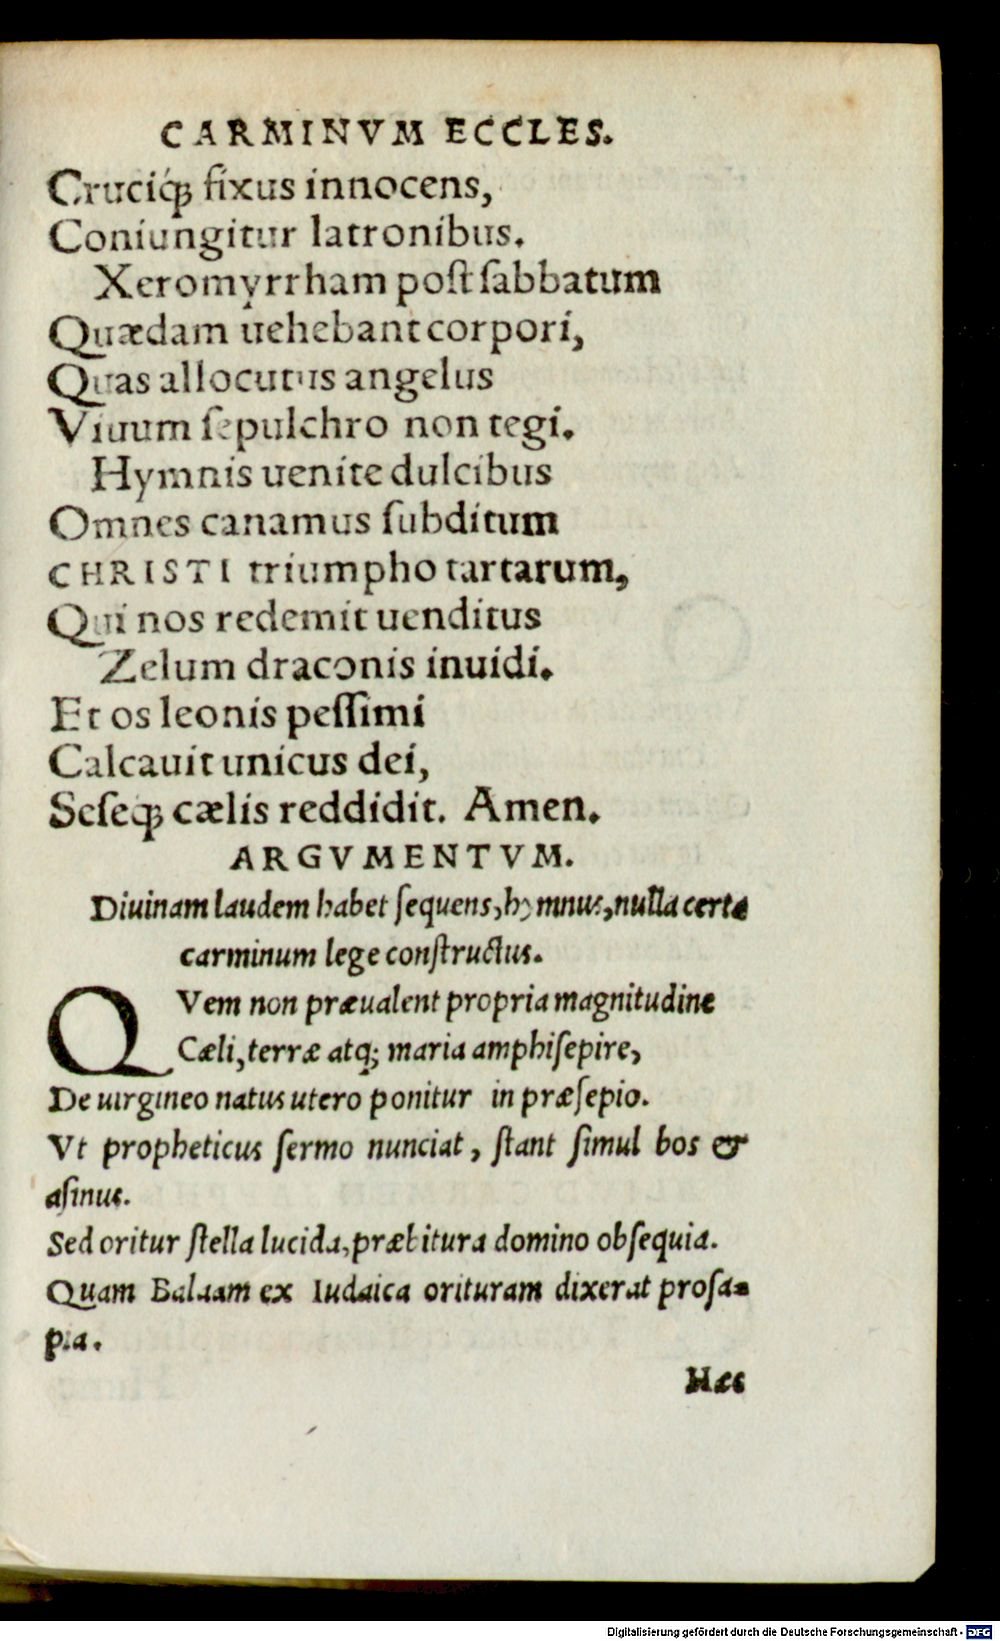 CARMINVM ECCLES.
Cruciq́ꝫ fixus innocens,
Coniungitur latronibus.
Xeromyrrham poſt ſabbatum
Quædam uehebant corpori,
Quas allocutus angelus
Viuum ſepulchro non tegi.
Hymnis uenite dulcibus
Omnes canamus ſubditum
CHRISTI triumpho tartarum,
Qui nos redemit uenditus
Zelum draconis inuidi.
Et os leonis peſſimi
Calcauit unicus dei,
Seſeqꝫ cælis reddidit. Amen.
ARGVMENTVM.
Diuinam laudem habet ſequens, hymnus, nulla certa
carminum lege conſtructus.
QVem non præualent propria magnitudine
Cæli, terræ atqꝫ maria amphiſepire,
De uirgineo natus utero ponitur in præſepio.
Vt propheticus ſermo nunciat, ſtant ſimul bos &
aſinus.
Sed oritur ſtella lucida, præbitura domino obſequia.
Quam Balaam ex Iudaica orituram dixerat proſa-
pia.
Hæc
Digitalisierung gefördert durch die Deutsche Forschungsgemeinschaft - DFG